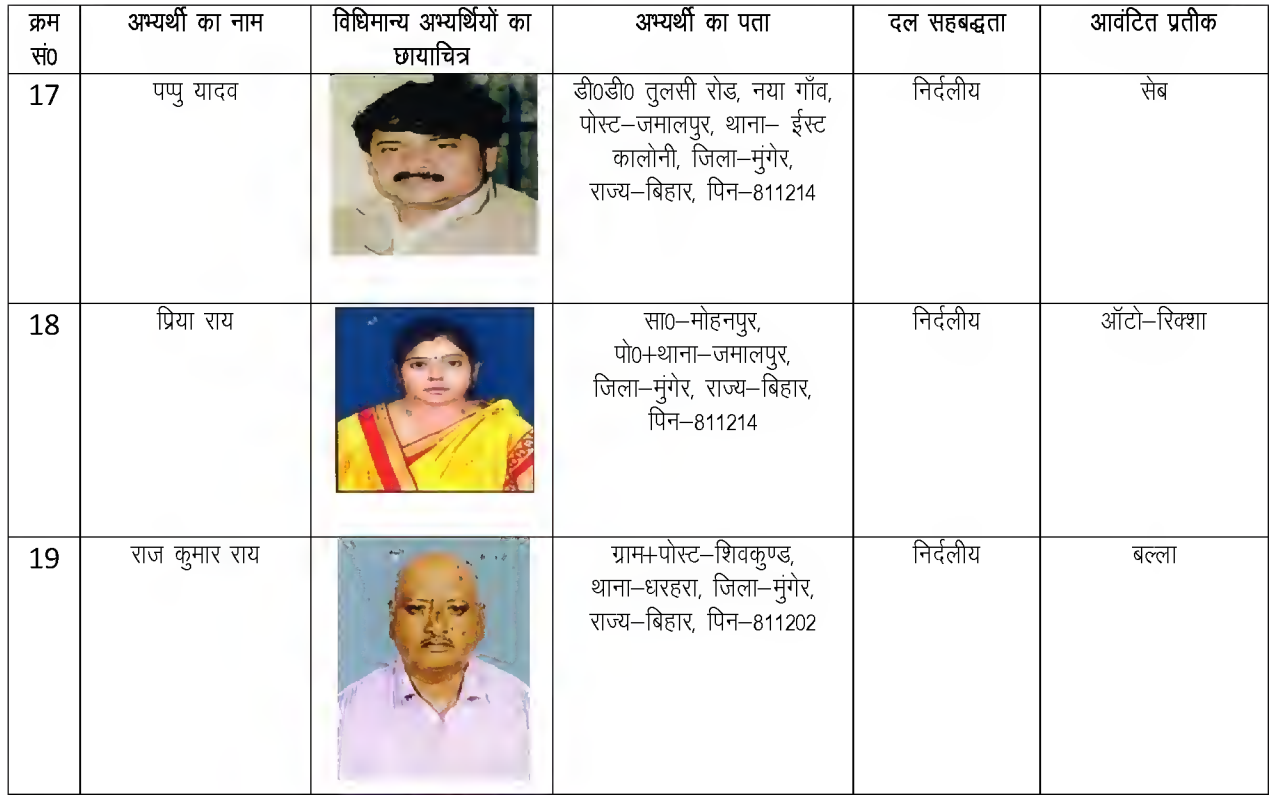 क्रम सं0
अभ्यर्थी का नाम
विधिमान्य अभ्यर्थियों का
छायाचित्र
अभ्यर्थी का पता
दल सहबद्धता
आवंटित प्रतीक
17
पप्पु यादव
डी0डी0 तुलसी रोड, नया गाँव,
पोस्ट–जमालपुर, थाना– ईस्ट
कालोनी, जिला–मुंगेर,
राज्य–बिहार, पिन–811214
निर्दलीय
सेब
18
प्रिया राय
सा0–मोहनपुर,
पो0+थाना–जमालपुर,
जिला–मुंगेर, राज्य–बिहार,
पिन–811214
निर्दलीय
ऑटो–रिक्शा
19
राज कुमार राय
ग्राम+पोस्ट–शिवकुण्ड,
थाना–धरहरा, जिला–मुंगेर,
राज्य–बिहार, पिन–811202
निर्दलीय
बल्ला